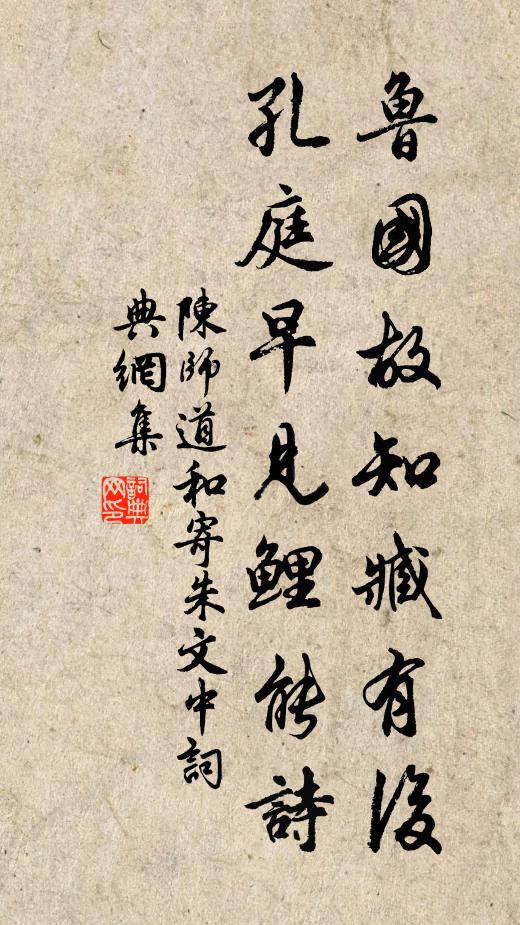 魯國故知臧有後
孔庭早見鯉能詩
陳師道和寄朱文中詞
典網集
詞典
网印